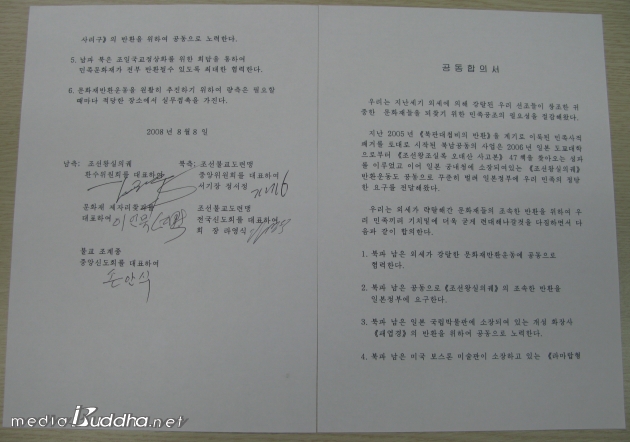 공동합의서
우리는 지난세기 외세에 의해 강탈된 우리 선조들이 창조한 귀
중한 문화재들을 되찾기 위한 민족공조의 필요성을 절감해왔다.
지난 2005년 《북관대첩비의 반환》을 계기로 이룩된 민족사적
쾌거를 토대로 시작된 북남공동의 사업은 2006년 일본 도꾜대학
으로부터 《조선왕조실록 오대산 사고본》 47책을 찾아오는 성과
를 이루었고 이어 일본 궁내청에 소장되어있는 《조선왕실의궤》
반환운동도 공동으로 꾸준히 벌려 일본정부에 우리 민족의 정당
한 요구를 전달해왔다.
우리는 외세가 략탈해간 문화재들의 조속한 반환을 위하여 우
리 민족끼리 기치밑에 더욱 굳게 련대해나갈것을 다짐하면서 다
음과 같이 합의한다.
1. 북과 남은 외세가 강탈한 문화재반환운동에 공동으로
협력한다.
2. 북과 남은 공동으로 《조선왕실의궤》의 조속한 반환을
일본정부에 요구한다.
3. 북과 남은 일본 국립박물관에 소장되어 있는 개심 화장사
《패엽경》의 반환을 위하여 공동으로 노력한다.
4. 북과 남은 미국 보스톤 미술관이 소장하고 있는 《라마탑형
사리구》의 반환을 위하여 공동으로 노력한다.
5. 남과 북은 조일국교정상화를 위한 회담을 통하여
민족문화재가 전부 반환될수 있도록 최대한 협력한다.
6. 문화재반환운동을 원활히 추진하기 위하여 량측은 필요할
때마다 적당한 장소에서 실무접촉을 가진다.
2008년 8월 8일
남측: 조선왕실의궤
환수위원회를 대표하여
문화재 제자리찾기를
대표하여
불교 조계종
중앙신도회를 대표하여
손안식
북측: 조선불교도련맹
중앙위원회를 대표하여
서기장 정서정
조선불교도련맹
전국신도회를 대표하여
회장 라영식
mediaBuddha.net